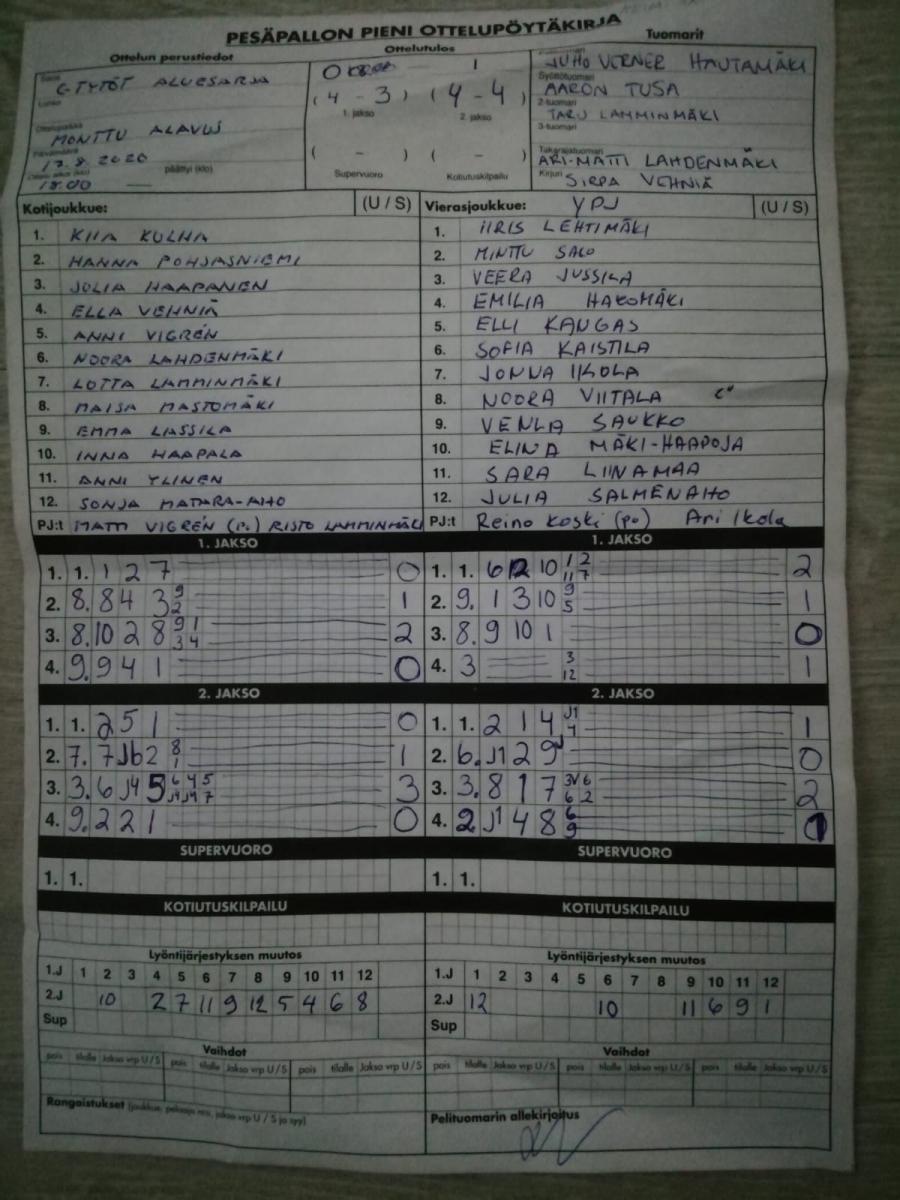 PESÄPALLON PIENI OTTELUPÖYTÄKIRJA
Ottelun perustiedot
Ottelutulos
Tuomarit
Sarja
C-TYTÖT ALUESARJA
Lohko
Ottelupaikka
MONTTU ALAVUS
Päivämäärä
17.8.2020
18.00
päättyi (klo)
0 1
(4 - 3) (4 - 4)
1. jakso 2. jakso
( - ) ( - )
Supervuoro Kotiutuskilpailu
JUHO VERNER HAUTAMÄKI
Syöttötuomari
AARON TUSA
2-tuomari
TARU LAMMINMÄKI
3-tuomari
Takarajatuomari
ARI-MATTI LAHDENMÄKI
Kirjuri
SIRPA VEHNIÄ
Kotijoukkue: (U / S)
1. KIIA KULHA
2. HANNA POHJASNIEMI
3. JULIA HAAPANEN
4. ELLA VEHNIÄ
5. ANNI VIGRÉN
6. NOORA LAHDENMÄKI
7. LOTTA LAMMINMÄKI
8. MAISA MASTOMÄKI
9. EMMA LASSILA
10. INNA HAAPALA
11. ANNI YLINEN
12. SONJA MATARA-AHO
PJ:t MATTI VIGRÉN (P.) RISTO LAMMINMÄKI
Vierasjoukkue: YPJ (U / S)
1. IIRIS LEHTIMÄKI
2. MINTTU SALO
3. VEERA JUSSILA
4. EMILIA HAKOMÄKI
5. ELLI KANGAS
6. SOFIA KAISTILA
7. JONNA IKOLA
8. NOORA VIITALA
9. VENLA SAUKKO
10. ELINA MÄKI-HAAPOJA
11. SARA LIINAMAA
12. JULIA SALMENAHO
PJ:t Reino Koski (po) Ari Ikola
1. JAKSO
1. 1. 1 2 7 0
2. 8. 8 4 3 9 2 1
3. 8. 10 2 8 9 1 3 4 2
4. 9. 9 4 1 0
1. JAKSO
1. 1. 6 12 10 1 2 11 7 2
2. 9. 1 3 10 9 5 1
3. 8. 9 10 1 0
4. 3 3 12 1
2. JAKSO
1. 1. 2 5 1 0
2. 7. 7 J6 2 8 1 1
3. 3. 6 J4 5 6 4 5 J4 J4 7 3
4. 9. 2 2 1 0
2. JAKSO
1. 1. 2 1 4 J1 4 1
2. 6. J1 2 9 0
3. 3. 8 1 7 3V 6 6 2 2
4. 2. J1 4 8 6 9
SUPERVUORO
1. 1.
SUPERVUORO
1. 1.
KOTIUTUSKILPAILU
KOTIUTUSKILPAILU
Lyöntijärjestyksen muutos
1.J 1 2 3 4 5 6 7 8 9 10 11 12
2.J 10 2 7 11 9 12 5 4 6 8
Sup
Lyöntijärjestyksen muutos
1.J 1 2 3 4 5 6 7 8 9 10 11 12
2.J 12 10 11 6 9 1
Sup
Vaihdot
pois tilalle Jakso vrp U / S pois tilalle Jakso vrp U / S pois tilalle Jakso vrp U / S
Vaihdot
pois tilalle Jakso vrp U / S pois tilalle Jakso vrp U / S pois tilalle Jakso vrp U / S
Rangaistukset (joukkue, pelaaja nro, jakso vrp U / S ja syy)
Pelituomarin allekirjoitus